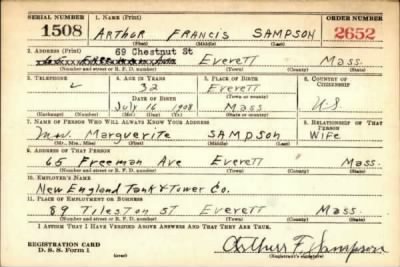 SERIAL NUMBER 1. NAME (Print) ORDER NUMBER
1508 ARTHUR FRANCIS SAMPSON 2652
(First) (Middle) (Last)
2. ADDRESS (Print) 69 Chestnut St
Freeman Ave Everett Mass.
(Number and street or R. F. D. number) (Town) (County) (State)
3. TELEPHONE 4. AGE IN YEARS 5. PLACE OF BIRTH 6. COUNTRY OF CITIZENSHIP
32 Everett
DATE OF BIRTH (Town or county)
July 16 1908 Mass U.S.
(Mo.) (Day) (Yr.) (State or country)
7. NAME OF PERSON WHO WILL ALWAYS KNOW YOUR ADDRESS 8. RELATIONSHIP OF THAT PERSON
Mrs. Marguerite SAMPSON WIFE
(Mr., Mrs., Miss) (First) (Middle) (Last)
9. ADDRESS OF THAT PERSON
65 Freeman Ave Everett Mass.
(Number and street or R. F. D. number) (Town) (County) (State)
10. EMPLOYER'S NAME
New England Tank & Tower Co.
11. PLACE OF EMPLOYMENT OR BUSINESS
89 Tileston ST Everett Mass
(Number and street or R. F. D. number) (Town) (County) (State)
I AFFIRM THAT I HAVE VERIFIED ABOVE ANSWERS AND THAT THEY ARE TRUE.
REGISTRATION CARD
D. S. S. Form 1
Arthur F. Sampson
(Registrant's signature)